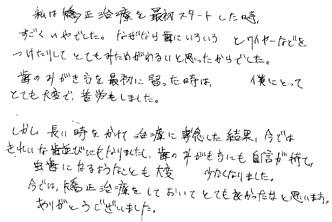 私は矯正治療を最初スタートした時、
すごくいやでした。なぜなら歯にいろいろ とワイヤーなどを
つけたりして とてもみためがわるいと思ったからでした。
歯のみがき方を最初に習った時は、 僕にとって
とても大変で、苦労もしました。
しかし 長い時をかけて 治療に専念した結果、今では
きれいな歯並びにもなりましたし、歯のみがき方にも自信が持て、
虫歯になるようなことも大変 少なくなりました。
今では、矯正治療をしておいて とても良かったなと思います。
ありがとうございました。